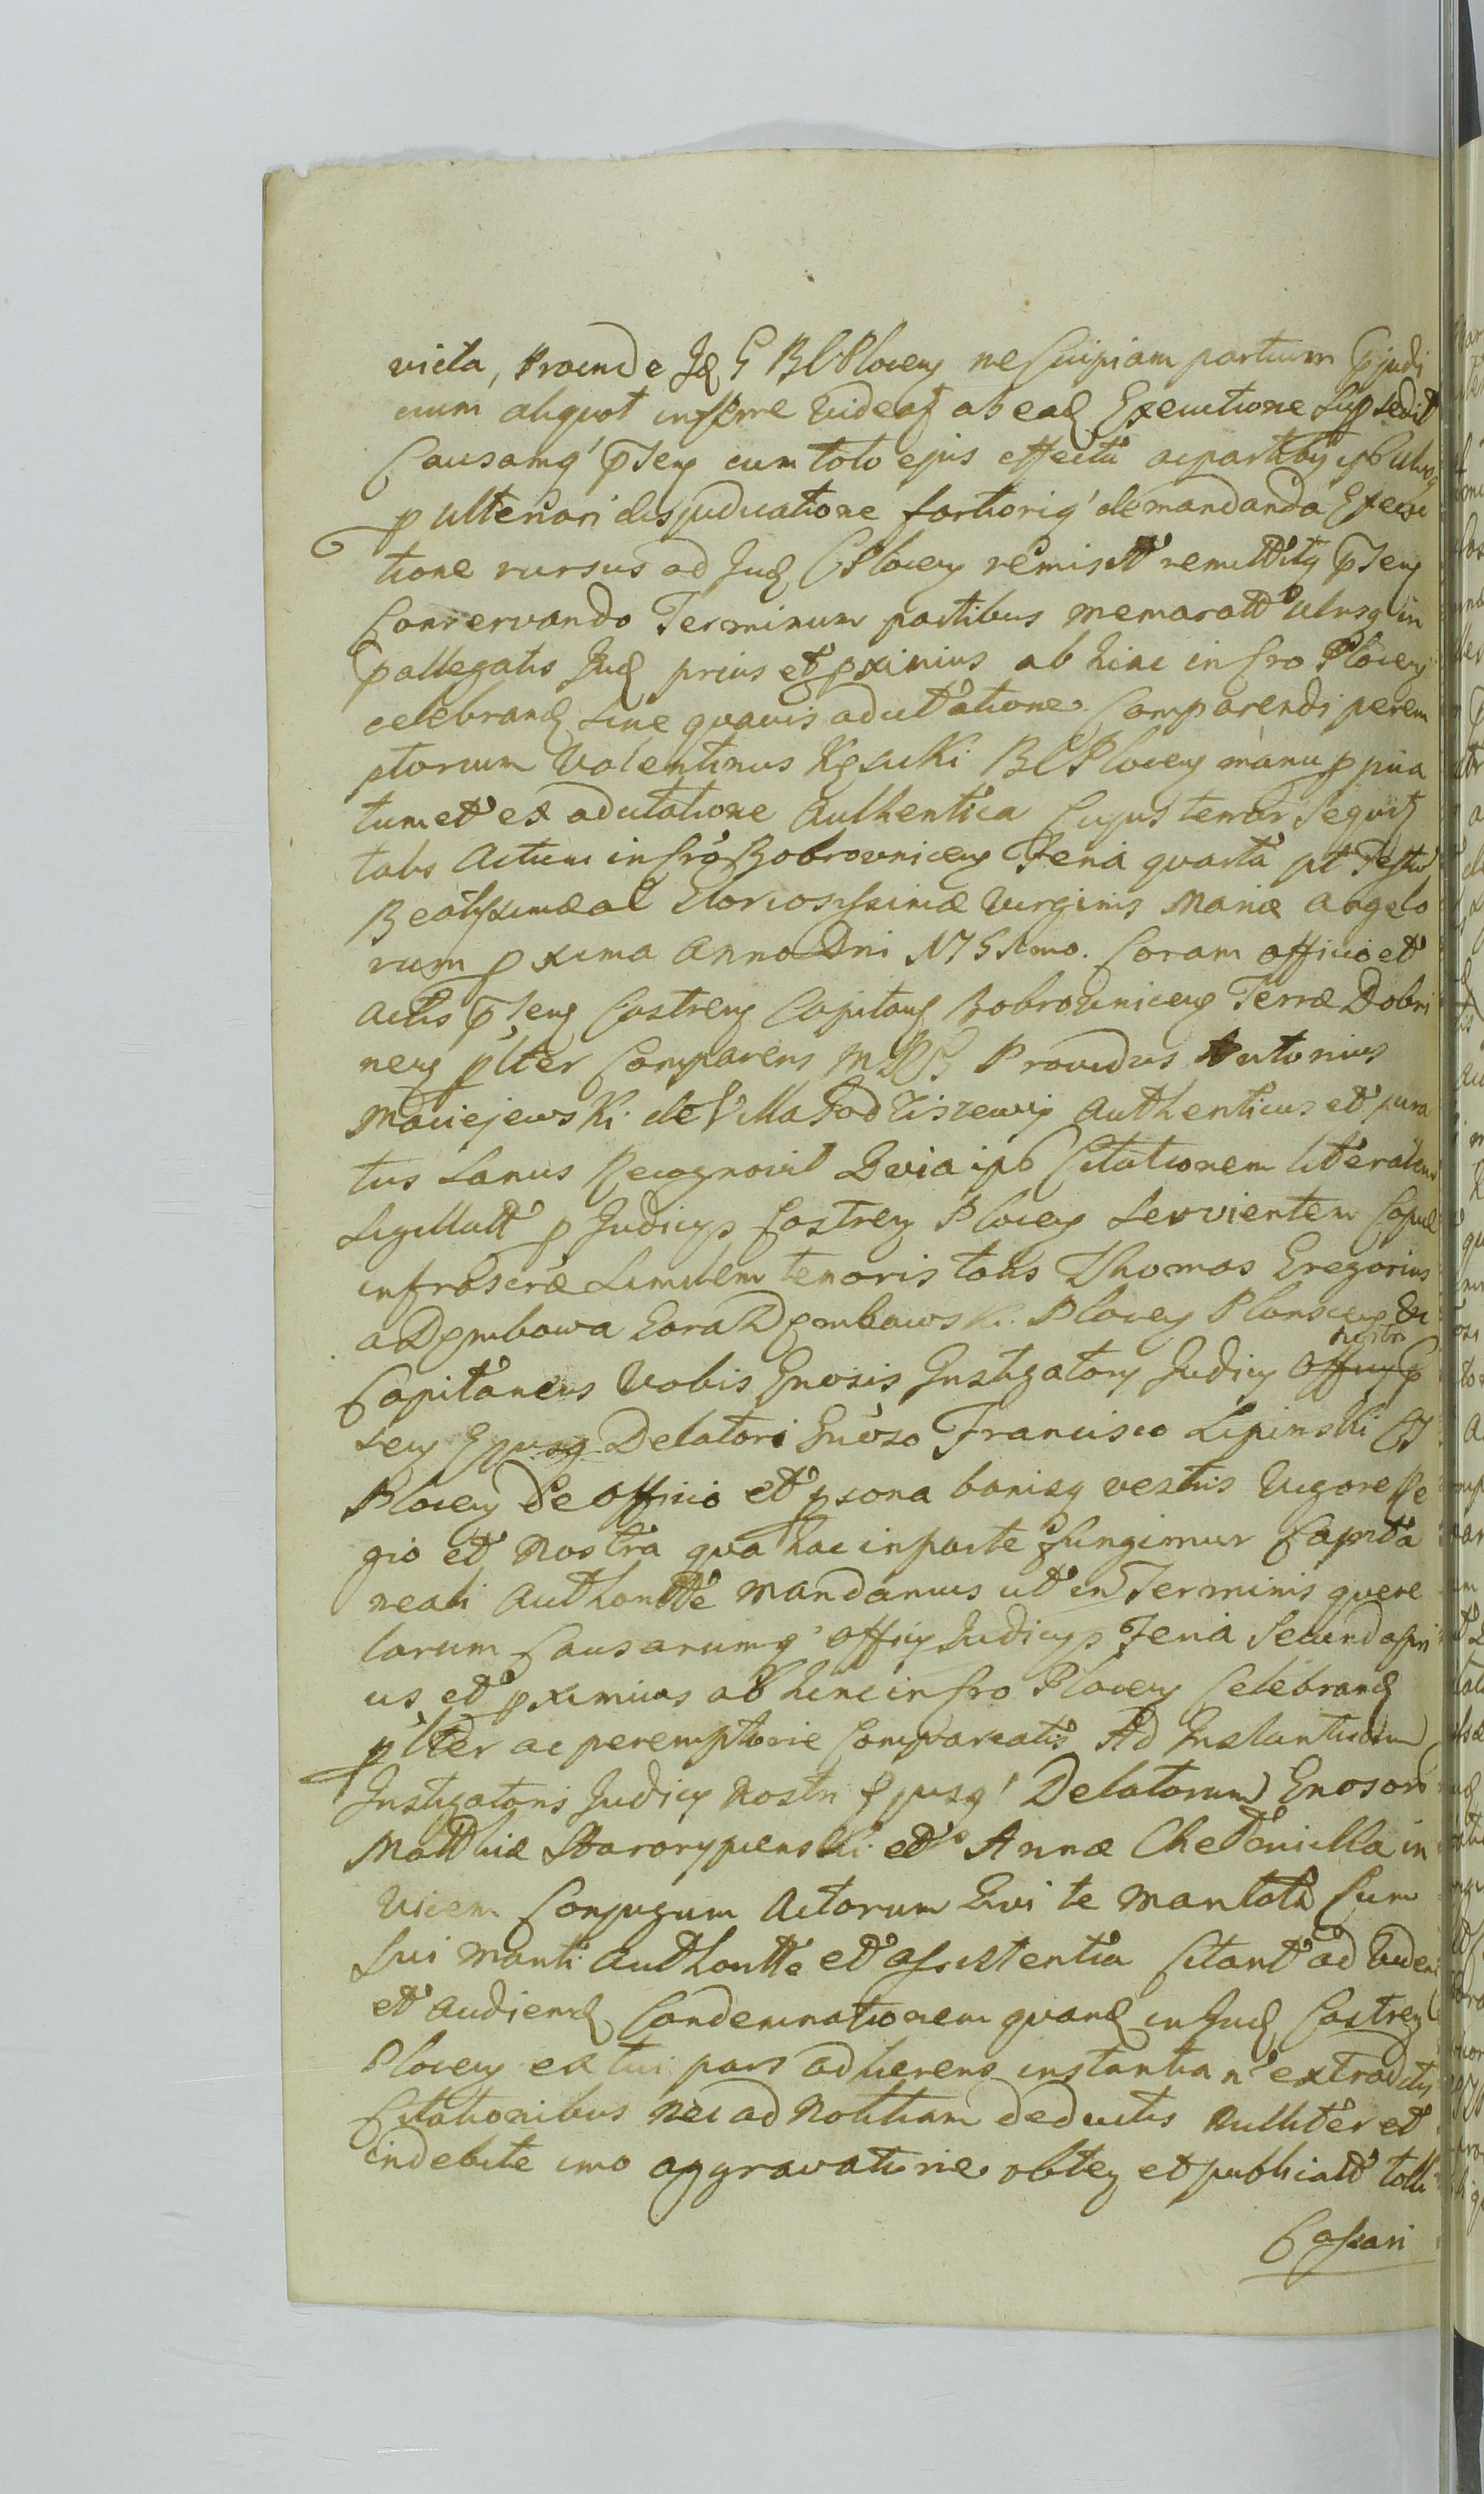 victa, Proinde Jd G BCPlocen ne Cuipiam partium pjudi
cium aliquot inferre Videat ab ead Executione Supsedit
Causamq' pnsen cum toto ejus effectu ac partibus ipsis Utrisq
p Ulteriori disjudicatione fortioriq' demandanda Execu
tione rursus ad Jud CPlocen remisit remittitq pnsen
Conservando Terminum partibus memoratt Utrisq in
pallegatis Jud prius et pximius ab hinc in Cro Plocen
celebrand Sine quavis adcitatione Comparendi perem
ptorium Valentinus Kęsicki BCPlocen manu ppria
tum et ex adcitatione Authentica Cujus tenor Sequit
talis Actum in Cro Bobrovnicen Feria quarta pt Festu
Beatissimæ ac Gloriosissimæ Virginis Mariæ Angelo
rum pxima Anno Dni 1751mo. Coram officio et
Actis pnsen Castren Capitan Bobrovnicen Terræ Dobri
nen plter Comparens Providus Antonius
Maciejewski de Villa authenticus et jura
tus Sanus Recognovit Quia ipse Citationem literalem
Sigillatt p Judicys Castren Plocen Servientem Copiæ
infrascræ Similem tenoris talis Thomas Gregorius
a Dęmbowa Gora Dęmbowski Plocen Plonscen &c
Capitaneus Vobis Gnosis Instigatory Judicy Officy p nostri
sen Ejusq Delatori Gnoso Francisco Lipinski CJ
Plocen de officio et psona bonisq vestris Vigore Re
gio et Nostra qua hac in parte fungimur Capita
neali Authoritte Mandamus ut in Terminis quere
larum Causarumq' officy Judicys Feria Secunda pri
us et pximius ab hinc in Cro Plocen Celebrand
plter ac peremptorie Compareatis Ad Instantiam
Instigatoris Judicy Nostri Ejusq' Delatorum Gnosor
Matthiæ Starorypienski et Annæ in
vicem Conjugum Actorum Qui te Maritata Cum
Sui Mariti Authoritte et assistentia Citant ad Viden
et Audiend Condemnationem quand in Jud Castren
Plocen ex tui pars adhærens instantia n' extraditis
Citationibus nec ad Notitiam deductis nulliter et
indebite imo aggravatorie obten et publicatt tolli
Cassari